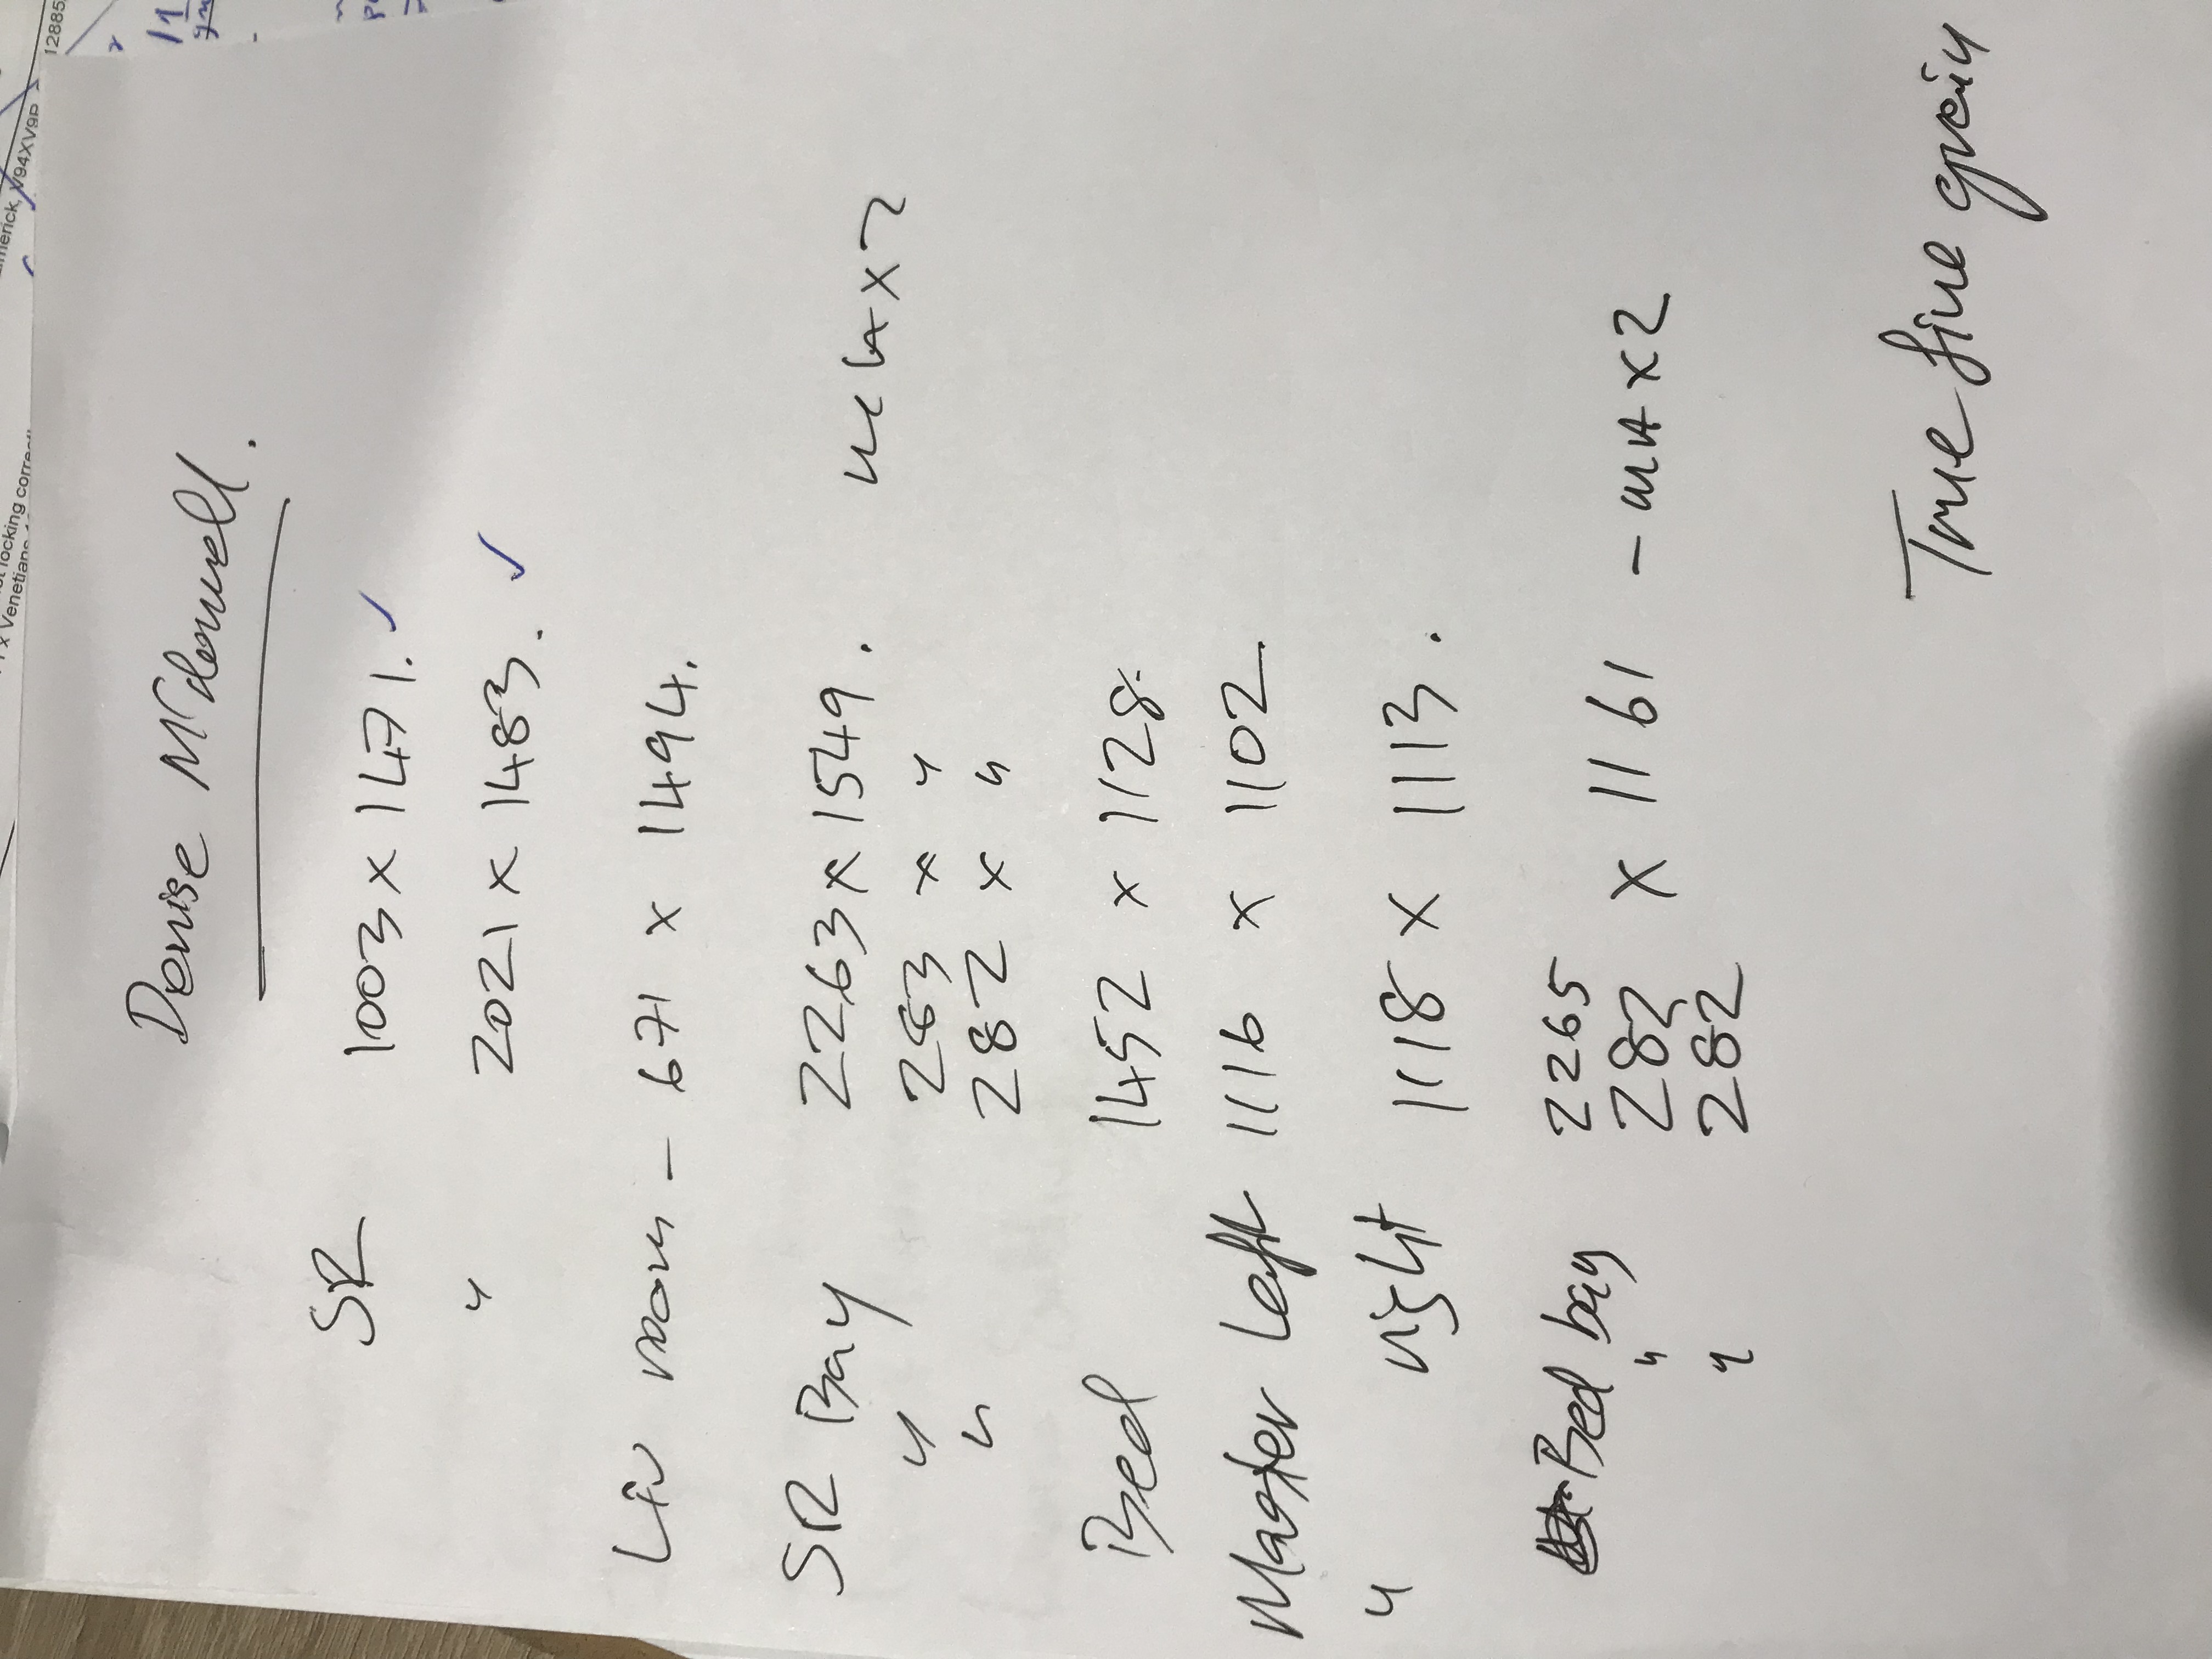 merick, V94XV9P
12885
locking corre
x Venetians
Denise McDonnell.
SR 1003 x 1471. ✓
" 2021 x 1483. ✓
Liv room - 671 x 1494.
SR Bay 2263 x 1549.
" 283 x "
" 282 x "
Bed 1452 x 1128.
Master Left 1116 x 1102
" right 1118 x 1113.
Bed bay 2265
" 282 x 1161 - x 2
" 282
True fine grain